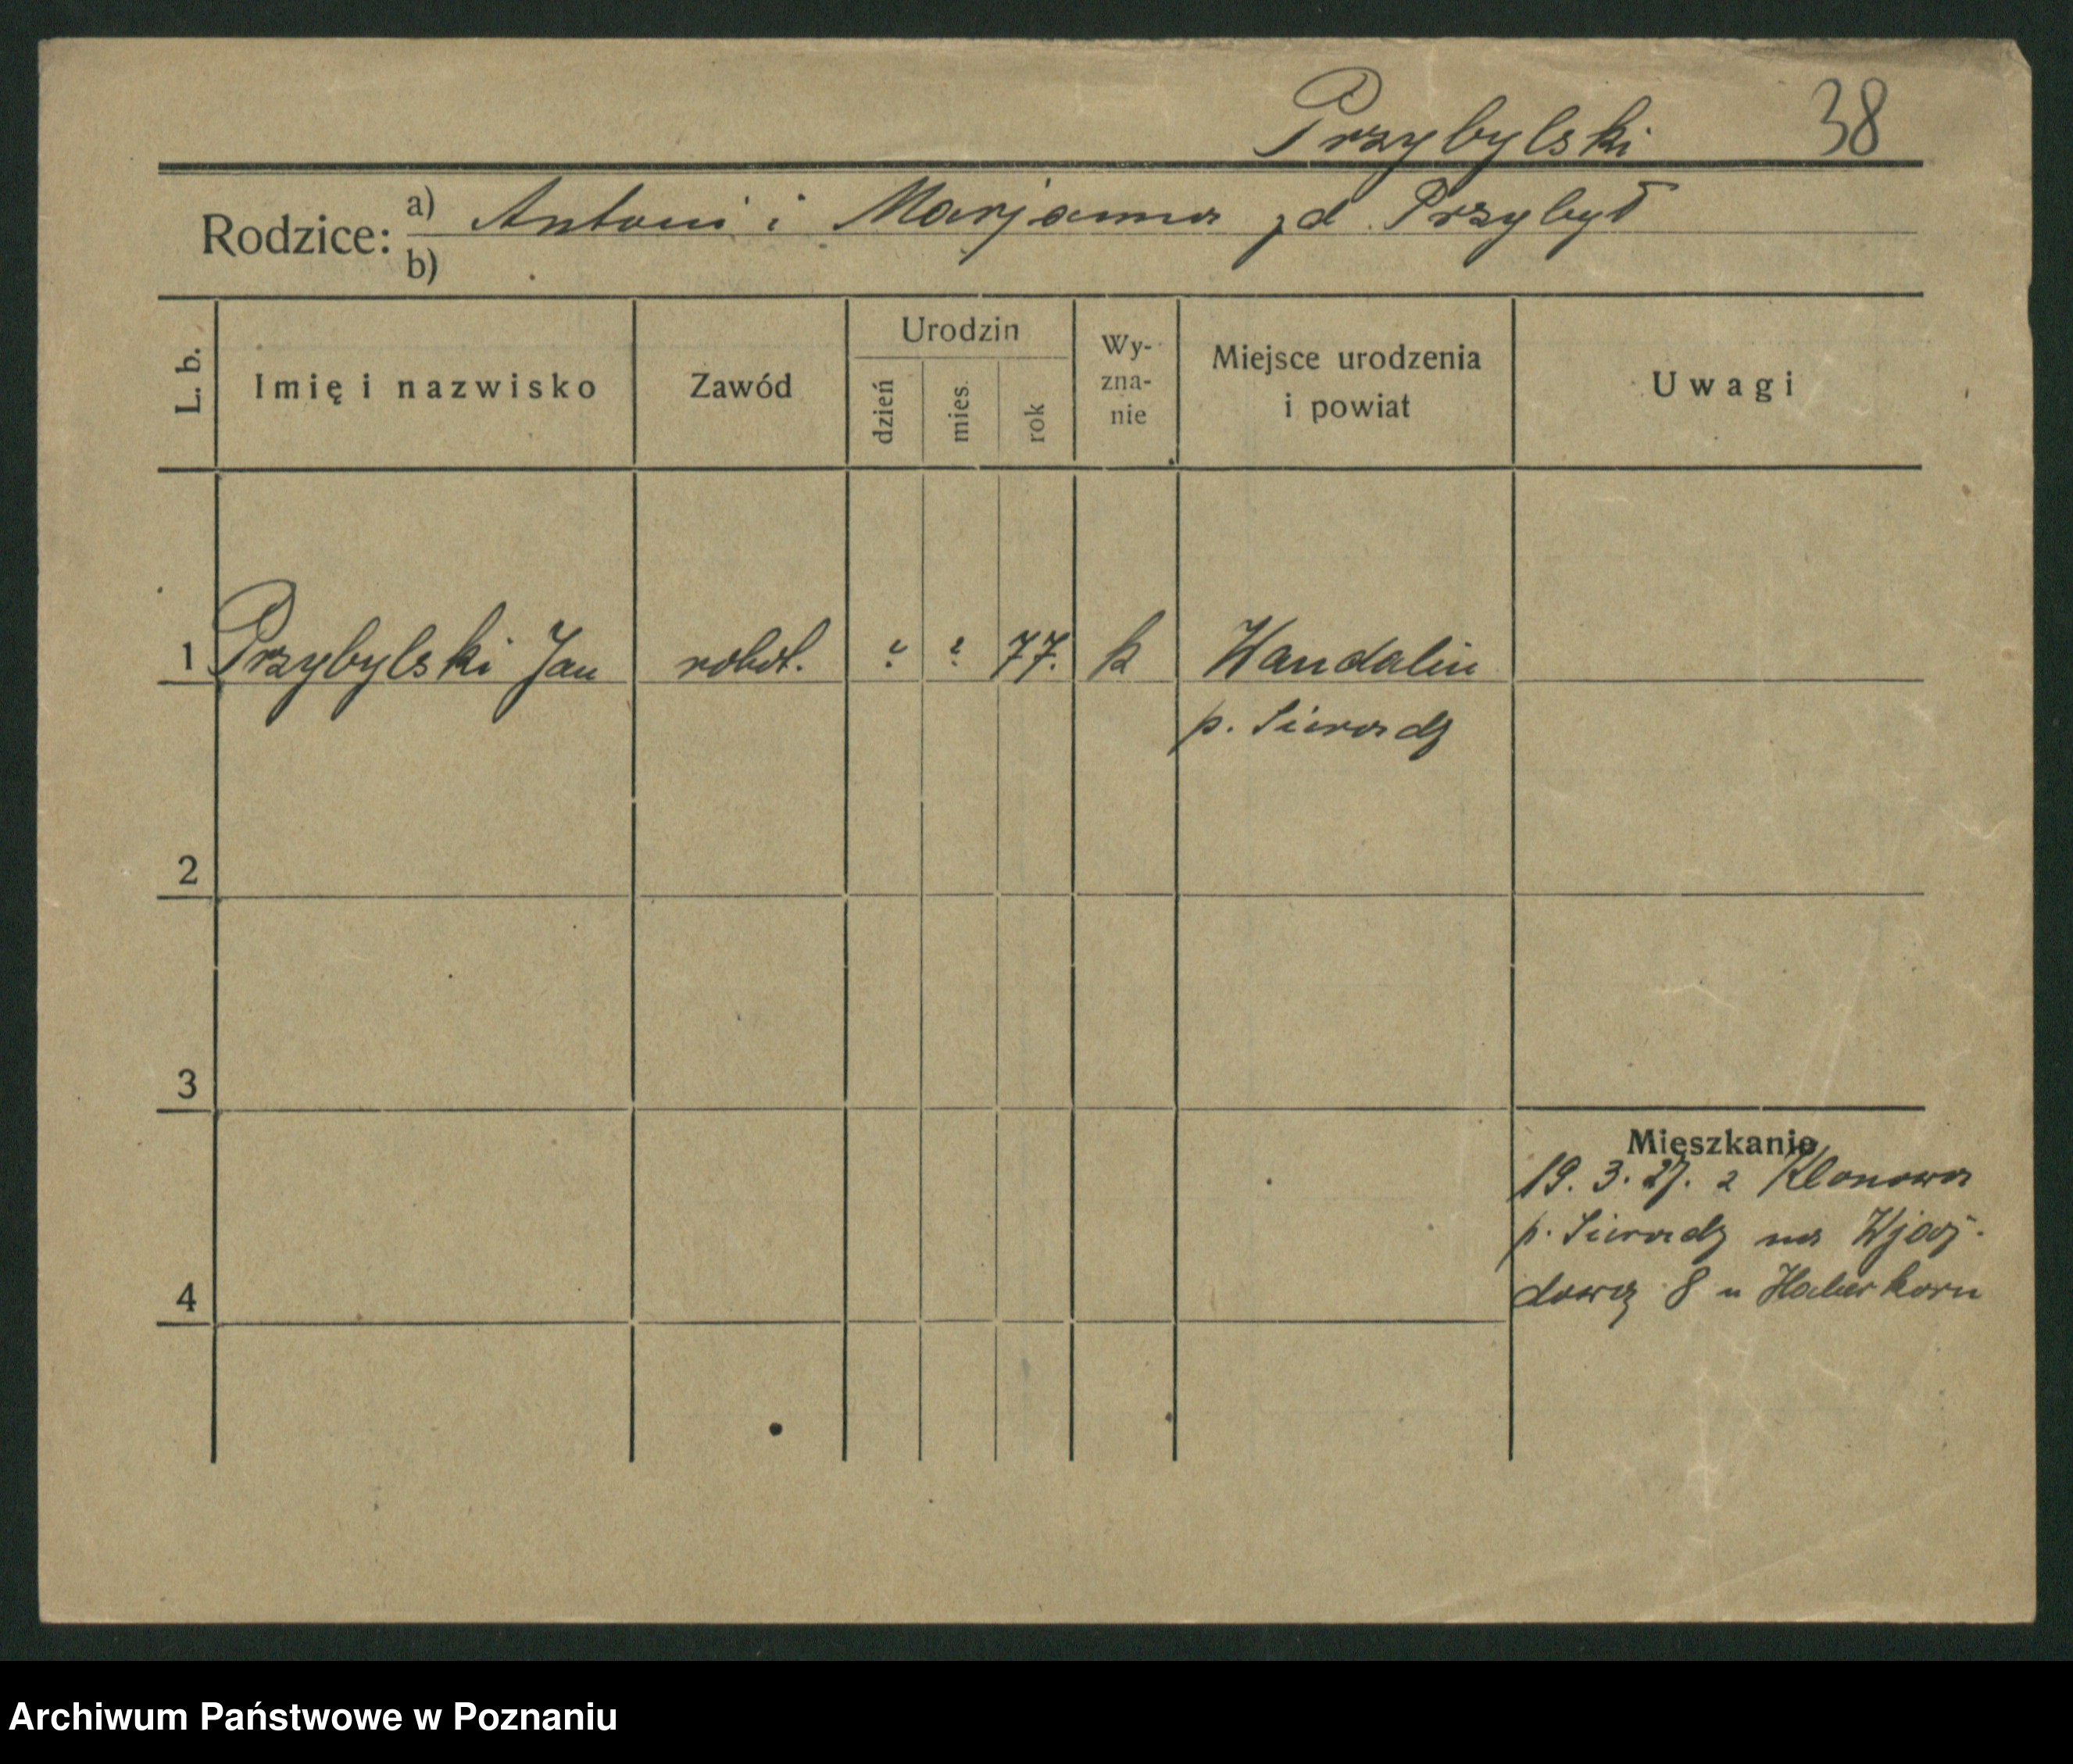 Przybylski 38
Rodzice: a) Antoni i Marjanna zd Przybył
b)
L. b. Imię i nazwisko Zawód Urodzin dzień mies. rok Wy-zna-nie Miejsce urodzenia i powiat Uwagi
1 Przybylski Jan robot. ? ? 77. k Wandalin
p. Sieradz
2
3
Mieszkanie
19. 3. 27. z Klonowa
p. Sieradz na Wjaz-
dową 8 u Haberkorn
4
Archiwum Państwowe w Poznaniu